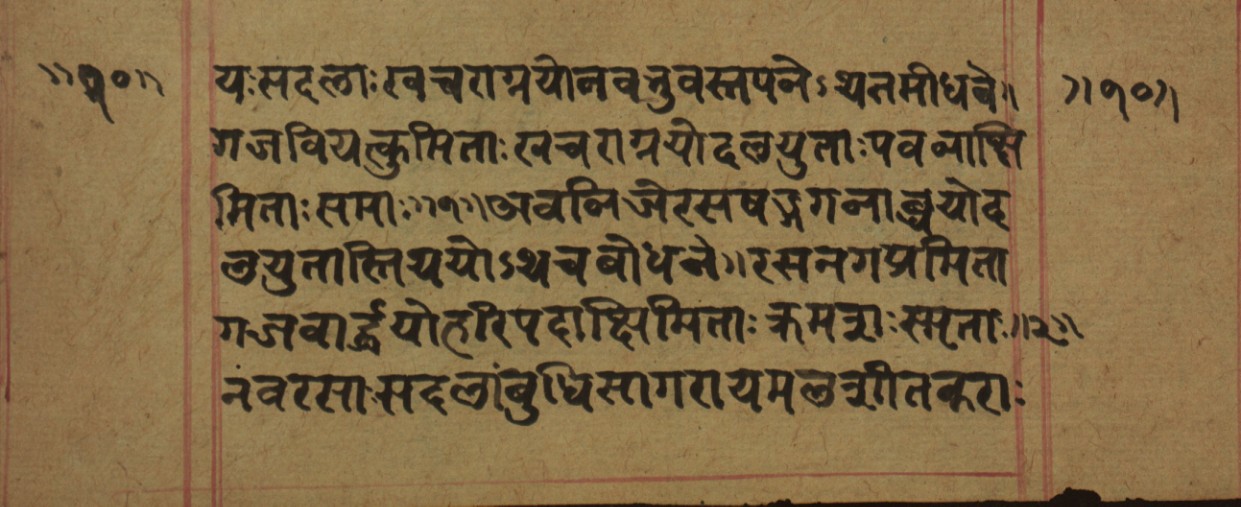 ॥१०॥ यःसदलाःखचराग्नयोनवनुवस्नपनेऽथनमीधवे॥ ॥१०॥
गजवियत्कुमिताःखचराग्नयोदलयुताःपवनाक्षि
मिताःसमाः॥१॥अवनिजेरसषड्गगनाब्धयोद
लयुतास्तिथयोऽथचबोधने॥रसनगप्रमिता
गजवार्द्धयोहरिपदाक्षिमिताःक्रमशःस्मृताः॥२॥
नवरसाःसदलांबुधिसागरायमलशीतकराः